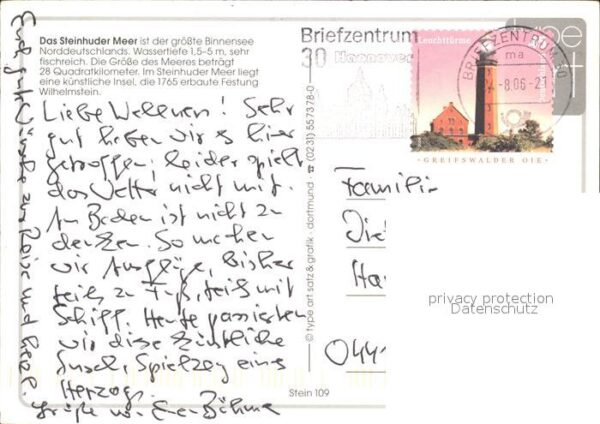 Das Steinhuder Meer ist der größte Binnensee
Norddeutschlands. Wassertiefe 1,5–5 m, sehr
fischreich. Die Größe des Meeres beträgt
28 Quadratkilometer. Im Steinhuder Meer liegt
eine künstliche Insel, die 1765 erbaute Festung
Wilhelmstein.
Liebe! Sehr
gut haben wir es hier
getroffen, leider spielt
das Wetter nicht mit.
An Baden ist nicht zu
denken. So machen
wir Ausflüge, bisher
teils zu Fuß, teils mit
Schiff. Heute passierten
wir diese künstliche
Insel, eines
Herzogs.
Grüße von Böhme
Euch gute Wünsche zur Reise und
Stein 109
© type art satz & grafik · dortmund · ☎ (0231) 557378-0
Briefzentrum
30 Hannover
BRIEFZENTRUM 30
ma
-8.06-21
Leuchttürme
GREIFSWALDER OIE
Familie
Die
Ha
044
privacy protection
Datenschutz